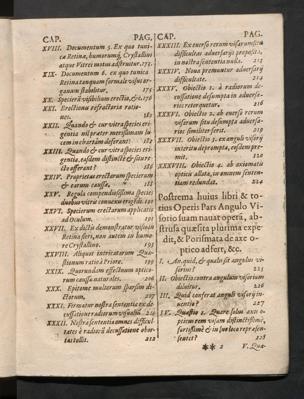 CAP. PAG.
XVIII. Documentum 5. Ex quo tunica
Retina, humorumq́, Crystallini
atque Vitrei motus adstruitur. 173.
XIX. Documentum 6. ex quo tunica
Retina tanquam formale visus organum
stabilitur, 175
XX. Specierũ visibilium erectio, &c. 176
XXI.
ria. 185
XXII. Quando & cur vitra species erigentia
nil præter meridianum lucem
in chartam deferant? 185
XXIII. Quando & cur vitra species erigentia,
easdem distinctè & sincerè
offerant? 186
XXIV. Proprietas erectarum specierum
& earum caussæ.
XXV. Regula compendiosissima species
duobus vitris conuexis erigẽdi. 191
XXVI. Specierum erectarum applicatio
ad oculum. 192
XXVII. Ex dictis demonstratur visio in
Retina fieri, non autem in humore
Crystallino. 195
XXVIII. Aliquot intricatarum Quæstionum
ratio à Priore. 199
XXIX. Quorundam effectuum opticorum
caussæ naturales. 205
XXX. Epitome multorum sparsim dictorum,
207
XXXI. Firmatur nostra sententia ex decussatione
radiorum visualiũ. 210
XXXII. Nostra sententia omnes difficultates
è radiorũ decussatione obortas
tollit. 212
CAP. PAG.
XXXIII. Ex euerso rerum visarum situ
difficultas aduersarijs proposita,
in nostra sententia nulla. 213
XXXIV. Noua premuntur aduersarij
difficultate. 214
XXXV. Obiectio 1. à radiorum decussatione
desumpta in aduersarios
retorquetur. 216
XXXVI. Obiectio 2. ab euerso rerum
visarum situ desumpta aduersarios
similiter ferit. 219
XXXVII. Obiectio 3. ex angulis visorijs
interitu deprompta, easdem premit.
220
XXXVIII. Obiectio 4. ab axiomatis
opticis allata, in eandem sententiam
redundat. 224
Postrema huius libri & totius
Operis Pars Angulo Visorio
suam nauat operã, abstrusa
quæsita plurima expedit,
& Porismata de axe optico
adfert, &c.
I. An, quid, & qualis sit angulus visorius?
225
II. Obiectio contra angulum visorium
diluitur. 226
III. Quid conferat anguli visorij notitia?
227
IV. Quæstio 1. Quare solus axis opticus
rem visam distinctissimè,
fortissimè & in suo loco repræsentet?
228
** 2 V. Quæ-